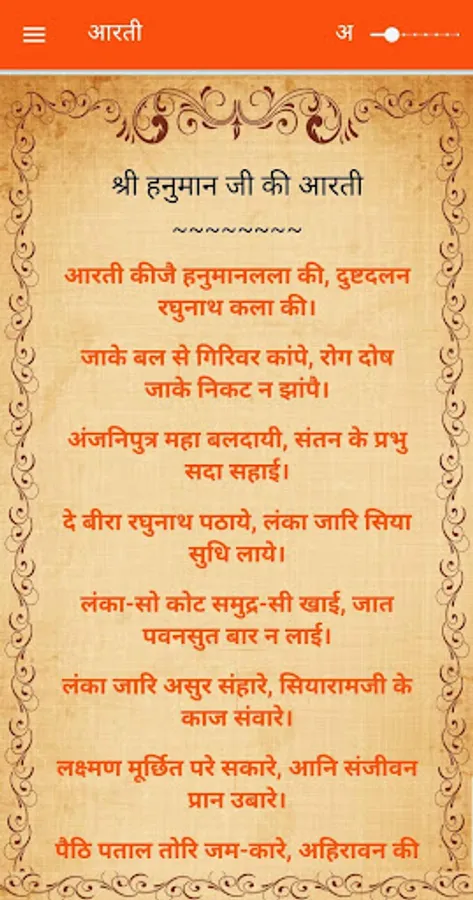 आरती
अ
श्री हनुमान जी की आरती
~~~~~~~~
आरती कीजै हनुमानलला की, दुष्टदलन
रघुनाथ कला की।
जाके बल से गिरिवर कांपे, रोग दोष
जाके निकट न झांपै।
अंजनिपुत्र महा बलदायी, संतन के प्रभु
सदा सहाई।
दे बीरा रघुनाथ पठाये, लंका जारि सिया
सुधि लाये।
लंका-सो कोट समुद्र-सी खाई, जात
पवनसुत बार न लाई।
लंका जारि असुर संहारे, सियारामजी के
काज संवारे।
लक्ष्मण मूर्छित परे सकारे, आनि संजीवन
प्रान उबारे।
पैठि पताल तोरि जम-कारे, अहिरावन की